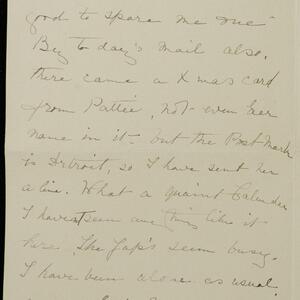 good to spare me one"
By to day's mail also.
there came a Xmas card
from Pattie, not even her
name in it - but the Post-Mark
is Detroit, so I have sent her
a line. What a quaint Calender
I havest seen any thing like it
here. The Jap's seem busy.
I have been alone as usual.